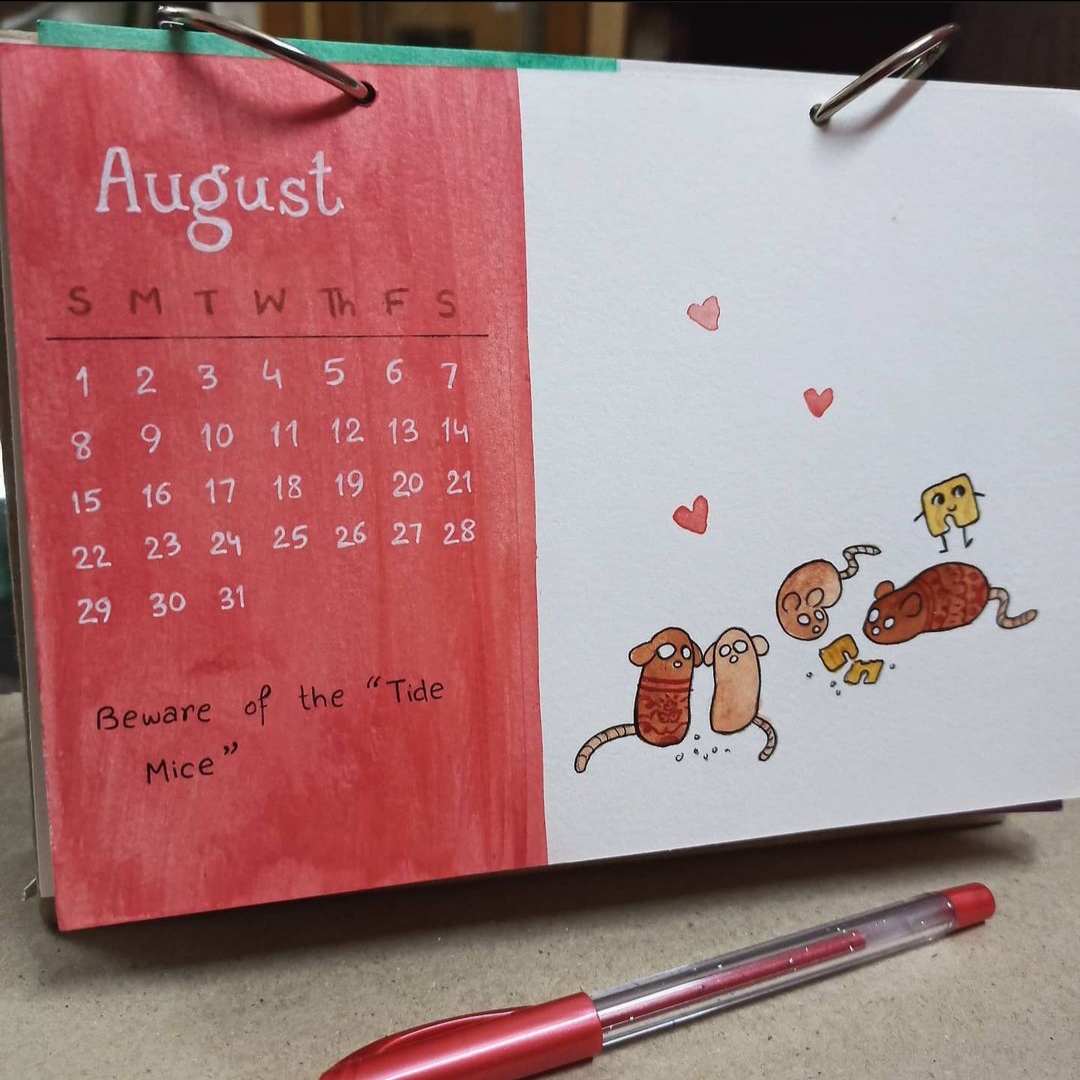 August
S M T W Th F S
1 2 3 4 5 6 7
8 9 10 11 12 13 14
15 16 17 18 19 20 21
22 23 24 25 26 27 28
29 30 31
Beware of the “Tide
Mice”